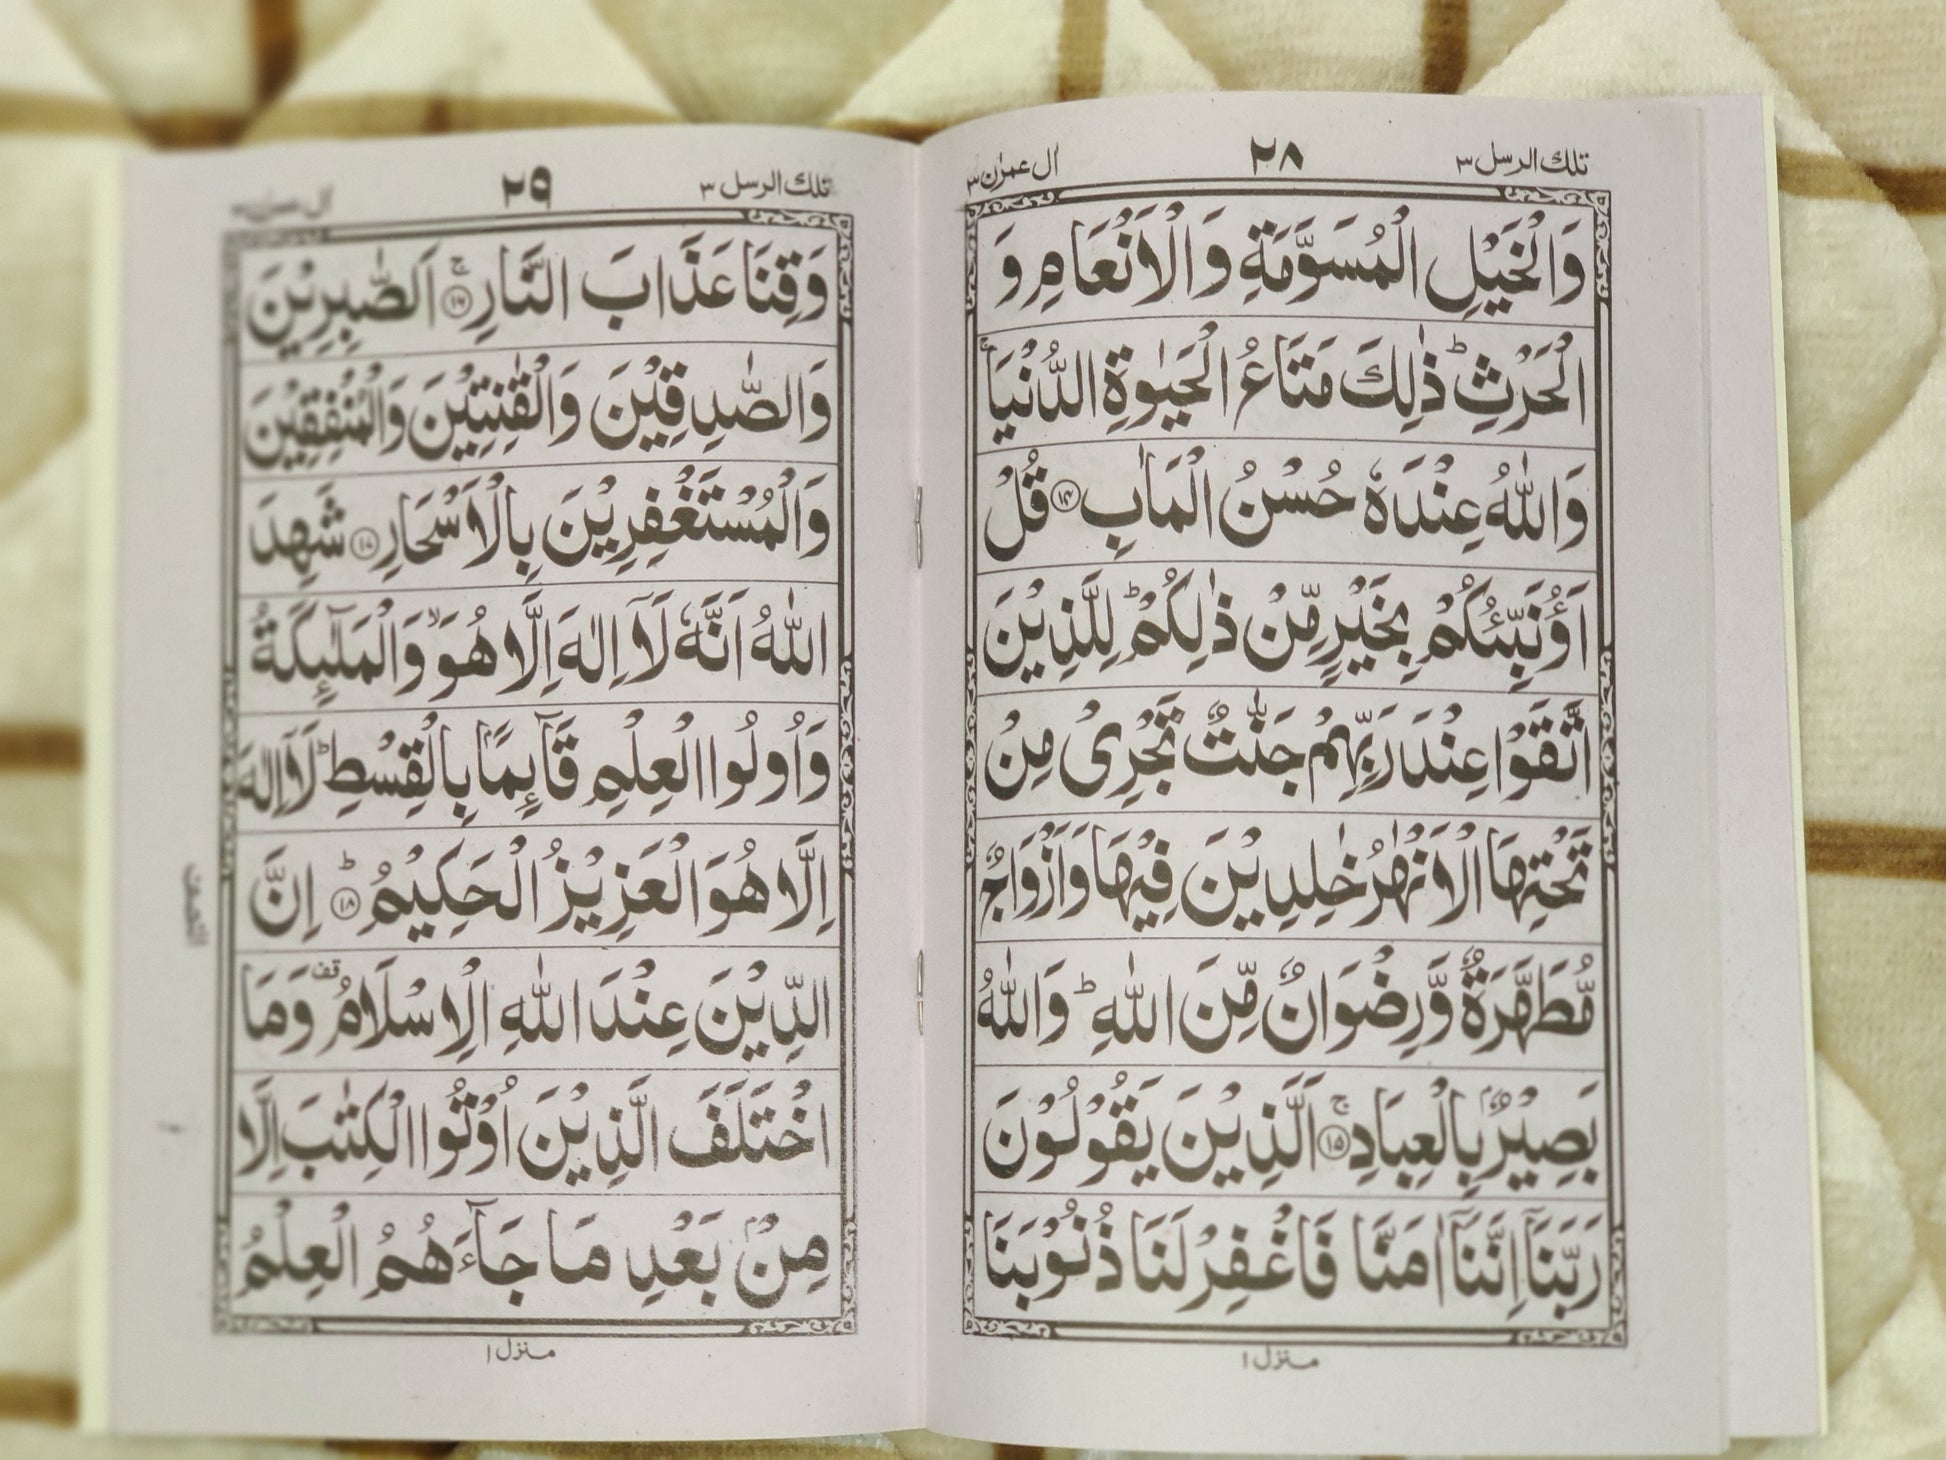 تلك الرسل ٣ ٢٨ اٰل عمرٰن ٣
وَالْخَيْلِ الْمُسَوَّمَةِ وَالْاَنْعَامِ وَ
الْحَرْثِ ؕ ذٰلِكَ مَتَاعُ الْحَيٰوةِ الدُّنْيَا ۚ
وَاللّٰهُ عِنْدَهٗ حُسْنُ الْمَاٰبِ ۝١٤ قُلْ
اَؤُنَبِّئُكُمْ بِخَيْرٍ مِّنْ ذٰلِكُمْ ؕ لِلَّذِيْنَ
اتَّقَوْا عِنْدَ رَبِّهِمْ جَنّٰتٌ تَجْرِىْ مِنْ
تَحْتِهَا الْاَنْهٰرُ خٰلِدِيْنَ فِيْهَا وَاَزْوَاجٌ
مُّطَهَّرَةٌ وَّرِضْوَانٌ مِّنَ اللّٰهِ ؕ وَاللّٰهُ
بَصِيْرٌۢ بِالْعِبَادِ ۚ۝١٥ اَلَّذِيْنَ يَقُوْلُوْنَ
رَبَّنَاۤ اِنَّنَاۤ اٰمَنَّا فَاغْفِرْ لَنَا ذُنُوْبَنَا
منزل ١
تلك الرسل ٣ ٢٩ اٰل عمرٰن ٣
وَقِنَا عَذَابَ النَّارِ ۚ۝١٦ اَلصّٰبِرِيْنَ
وَالصّٰدِقِيْنَ وَالْقٰنِتِيْنَ وَالْمُنْفِقِيْنَ
وَالْمُسْتَغْفِرِيْنَ بِالْاَسْحَارِ ۝١٧ شَهِدَ
اللّٰهُ اَنَّهٗ لَاۤ اِلٰهَ اِلَّا هُوَ ۙ وَالْمَلٰٓئِكَةُ
وَاُولُوا الْعِلْمِ قَآئِمًۢا بِالْقِسْطِ ؕ لَاۤ اِلٰهَ
اِلَّا هُوَ الْعَزِيْزُ الْحَكِيْمُ ؕ۝١٨ اِنَّ
الدِّيْنَ عِنْدَ اللّٰهِ الْاِسْلَامُ قف وَمَا
اخْتَلَفَ الَّذِيْنَ اُوْتُوا الْكِتٰبَ اِلَّا
مِنْۢ بَعْدِ مَا جَآءَهُمُ الْعِلْمُ
منزل ١